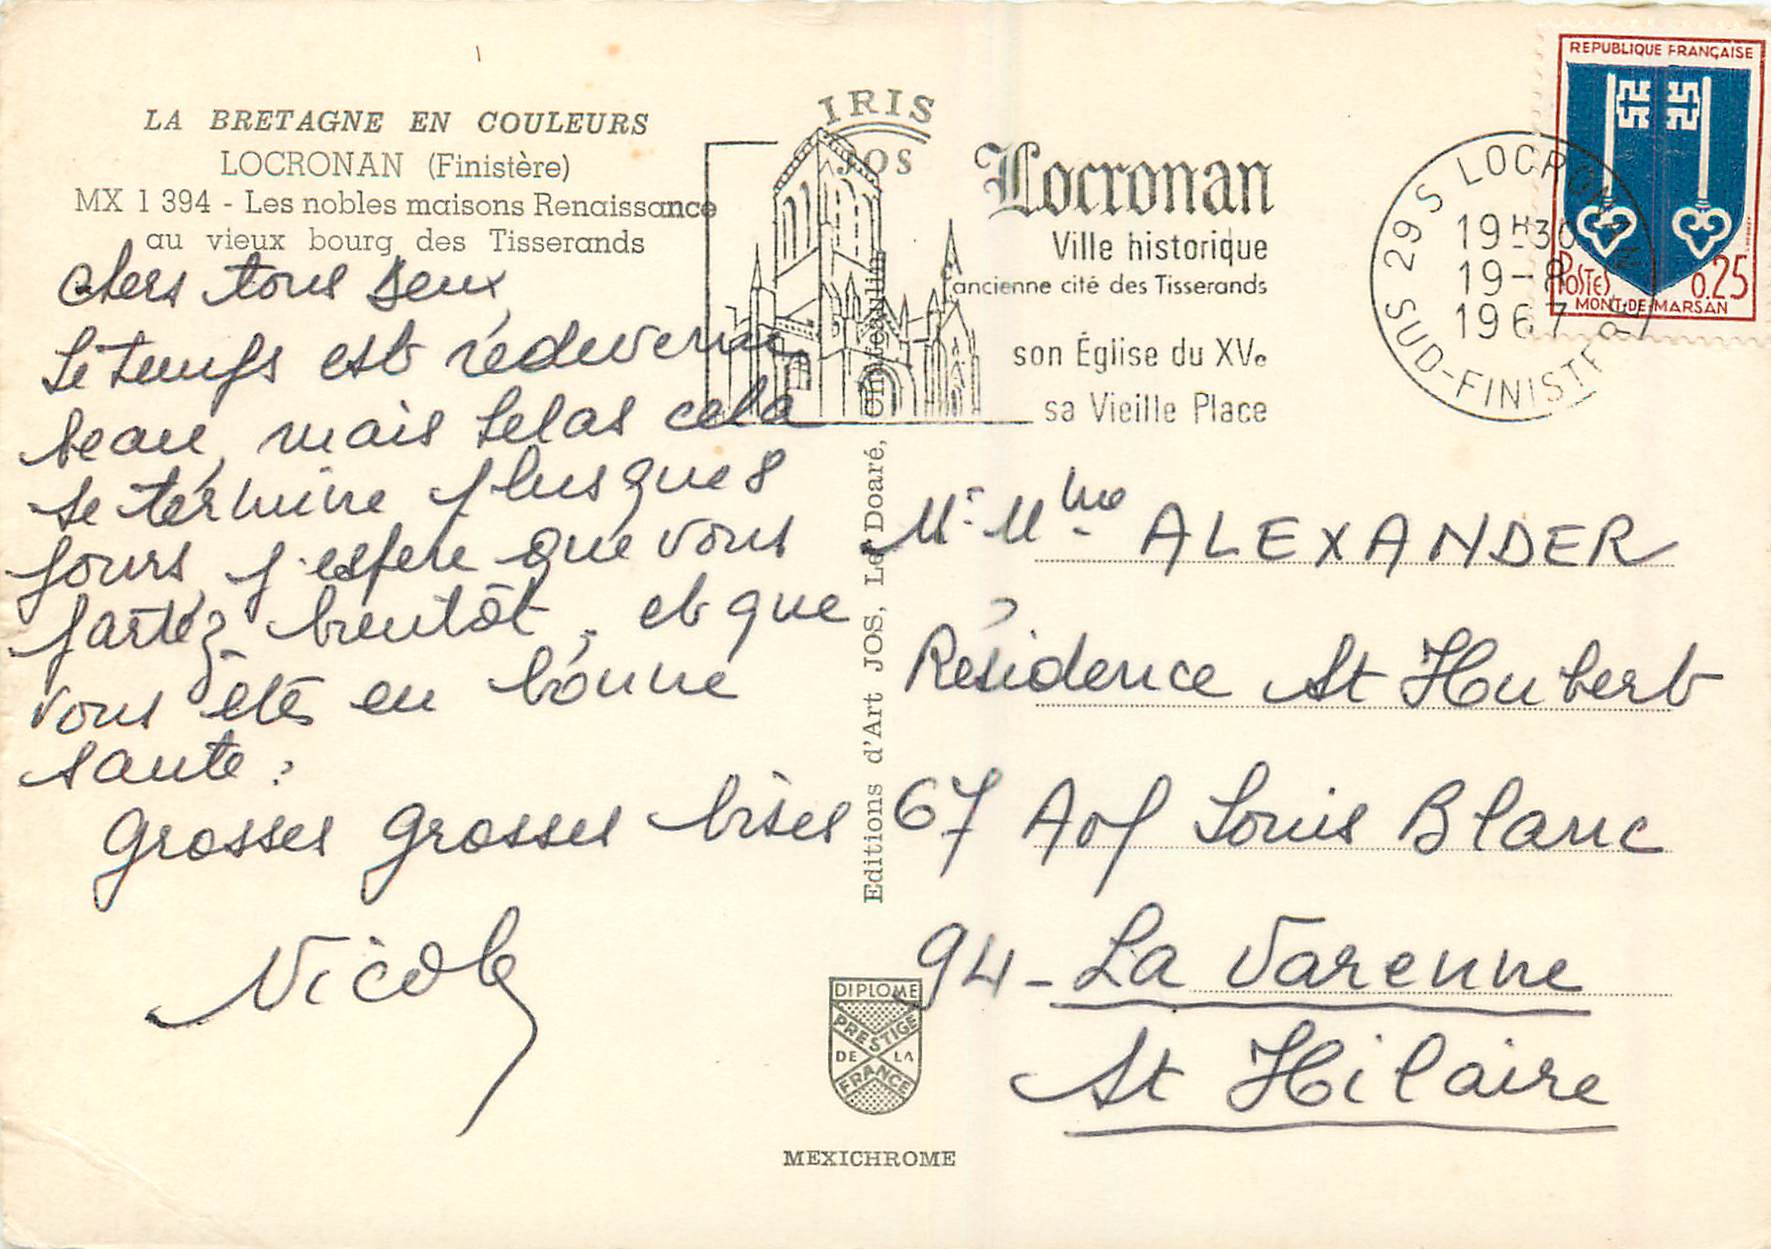 LA BRETAGNE EN COULEURS
LOCRONAN (Finistère)
MX 1 394 - Les nobles maisons Renaissance
au vieux bourg des Tisserands
chers tous deux
le temps est redevenu
beau, mais helas cela
se termine plusques
jours, j'espere que vous
partez bientôt, et que
vous êtes en bonne
sante.
grosses grosses bises
Nicole
IRIS
JOS
Locronan
Ville historique
ancienne cité des Tisserands
son Église du XVe
sa Vieille Place
29S LOCRONAN
19H30
19-8
1967
SUD-FINISTERE
REPUBLIQUE FRANÇAISE
POSTES 0.25
MONT-DE-MARSAN
Editions d'Art JOS, Le Doaré, Chateaulin
Mr Mme ALEXANDER
Résidence St Hubert
67 Louis Blanc
94 - La Varenne
St Hilaire
DIPLOME
PRESTIGE
DE LA
FRANCE
MEXICHROME